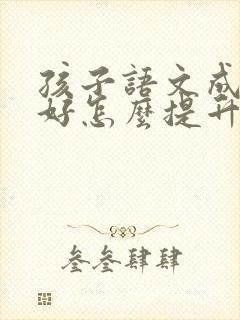 孩子語文成
好怎麼提升
叁叁肆肆